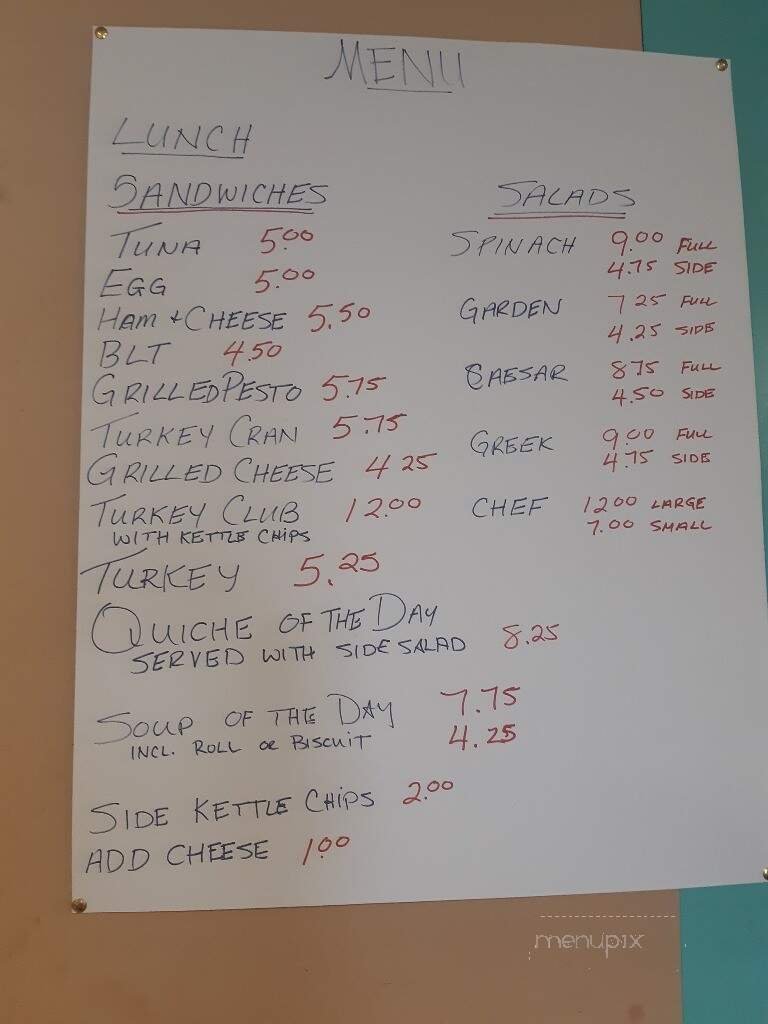 MENU
LUNCH
SANDWICHES
TUNA 5.00
EGG 5.00
HAM + CHEESE 5.50
BLT 4.50
GRILLED PESTO 5.75
TURKEY CRAN 5.75
GRILLED CHEESE 4 25
TURKEY CLUB 12.00
WITH KETTLE CHIPS
TURKEY 5.25
QUICHE OF THE DAY
SERVED WITH SIDE SALAD 8.25
SOUP OF THE DAY 7.75
INCL. ROLL OR BISCUIT 4.25
SIDE KETTLE CHIPS 2.00
ADD CHEESE 1.00
SALADS
SPINACH 9.00 FULL
4.75 SIDE
GARDEN 7 25 FULL
4.25 SIDE
CAESAR 8 75 FULL
4.50 SIDE
GREEK 9.00 FULL
4.75 SIDE
CHEF 12 00 LARGE
7.00 SMALL
menupix